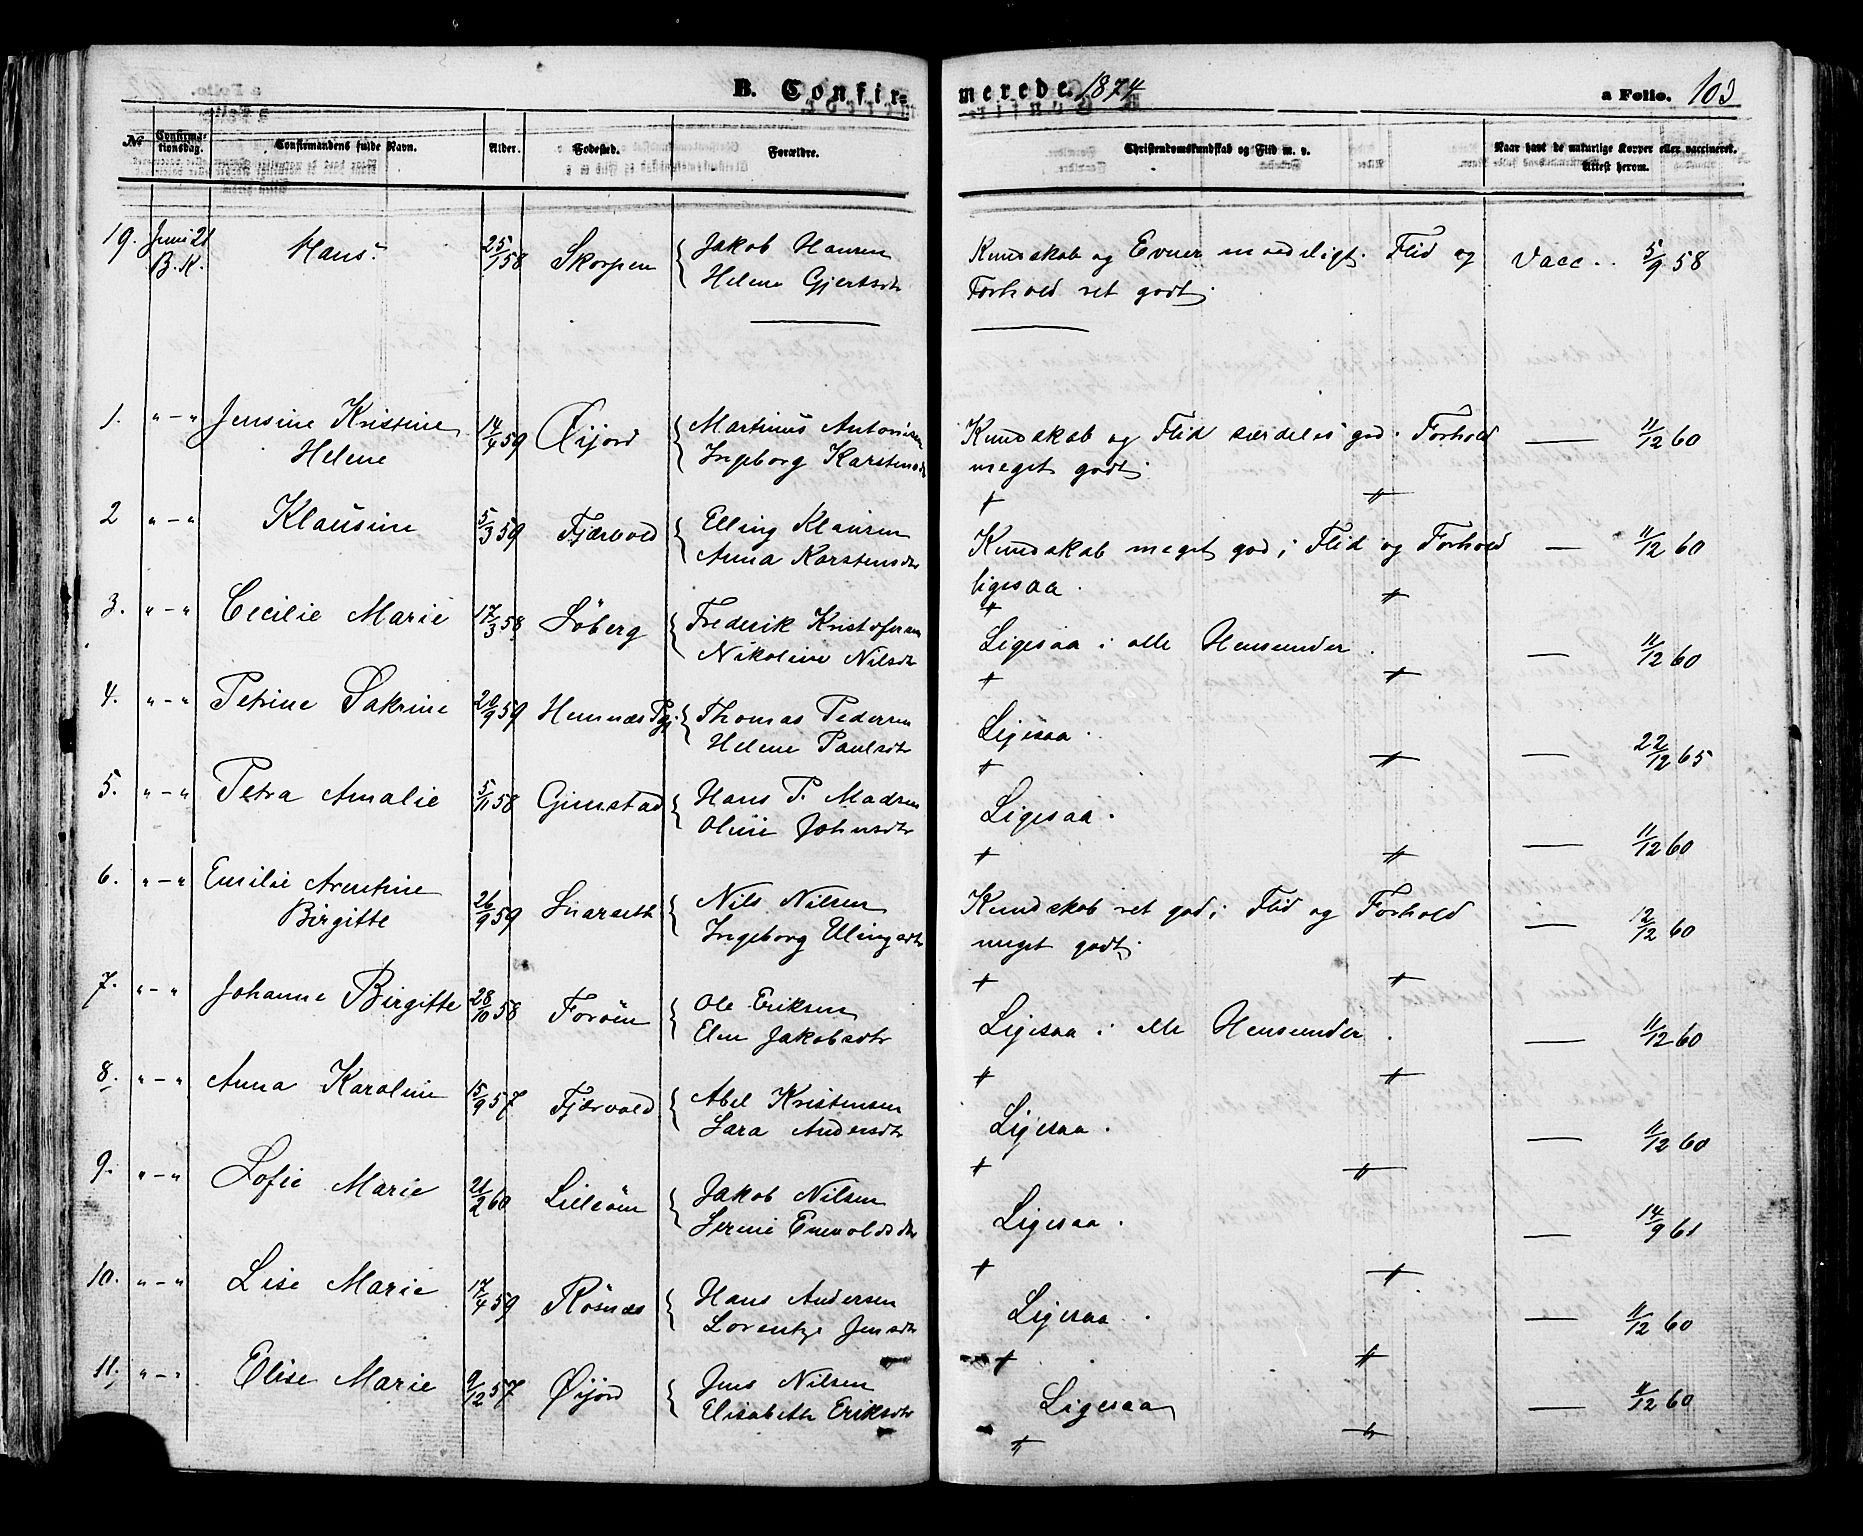 B. Confir= merede. 1874 a Folio. 103
No Confirma-tionsdag. Confirmandens fulde Navn. Alder. Fødested. Forældre. Christendomskundskab og Flid m. v. Naar havt de naturlige Kopper eller vaccineret. Attest herom.
19. Juni 21 B.K. Hans. 25/1 58 Skorpen { Jakob Hansen Kundskab og Evner maadeligt. Flid og Vacc. 5/9 58
Helene Gjertsdtr Forhold ret godt
1. " - " Jensine Kristine 14/4 59 Øijord { Martinus Antonisen Kundskab og Flid særdeles god. Forhold — 11/12 60
Helene Ingeborg Karstensdtr meget godt
2 " - " Klausine 5/3 59 Fjærvold { Elling Klausen Kundskab meget god; Flid og Forhold — 11/12 60
Anna Karstensdtr ligesaa.
3. " - " Cecilie Marie 17/3 58 Söberg { Frederik Kristofersen Ligesaa i alle Henseender. — 11/12 60
Nikoline Nilsdtr
4. " - " Petrine Sakrine 20/9 59 Hemnæs Pgj. { Thomas Pedersen Ligesaa. — 22/12 65
Helene Paulsdtr
5. " - " Petra Amalie 5/11 58 Gimstad { Hans P. Madsen Ligesaa. — 11/12 60
Oline Johnsdtr
6. " - " Emilie Arentine 26/9 59 { Nils Nilsen Kundskab ret god; Flid og Forhold — 12/12 60
Birgitte Ingeborg Ellingsdtr meget godt
7. " - " Johanne Birgitte 28/10 58 Foröen { Ole Eriksen Ligesaa i alle Henseender. — 11/12 60
Elen Jakobsdtr
8. " - " Anna Karoline 15/9 57 Fjærvold { Abel Kristensen Ligesaa. — 11/12 60
Sara Andersdtr
9. " - " Sofie Marie 21/2 60 Lilleöen { Jakob Nilsen Ligesaa. — 14/9 61
Serine Enevoldsdtr
10. " - " Lise Marie 17/4 59 Rösnæs { Hans Andersen Ligesaa. — 11/12 60
Lorentze Jensdtr
11. " - " Elise Marie 9/12 57 Øijord { Jens Nilsen Ligesaa — 11/12 60
Elisabeth Eriksdtr